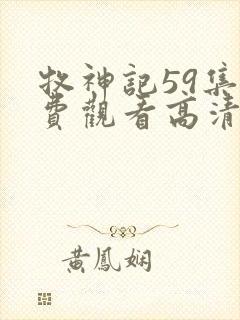 牧神記59集
費觀看高清
黃鳳嫻